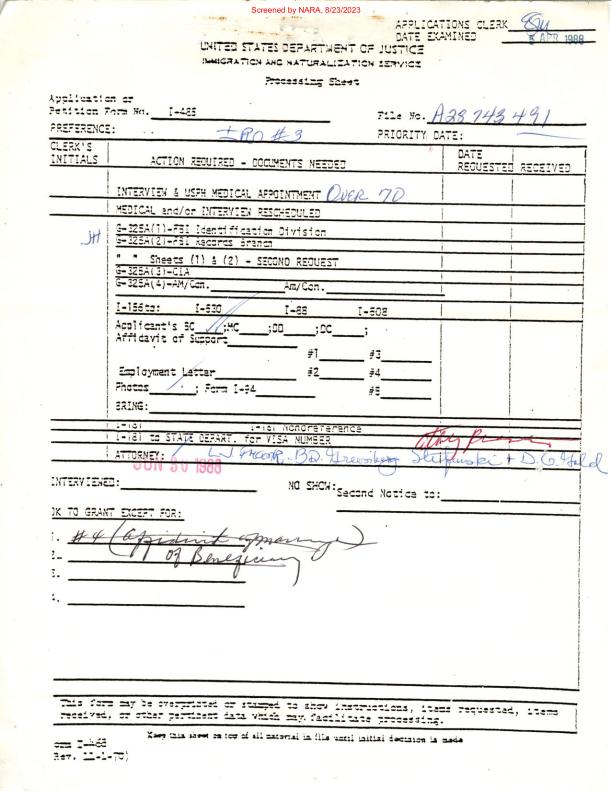 Screened by NARA, 8/23/2023
APPLICATIONS CLERK
DATE EXAMINED 5 APR 1988
UNITED STATES DEPARTMENT OF JUSTICE
IMMIGRATION AND NATURALIZATION SERVICE
Processing Sheet
Application or
Petition Form No. I-485 File No. A28 743 491
PREFERENCE: PRIORITY DATE:
CLERK'S INITIALS ACTION REQUIRED - DOCUMENTS NEEDED DATE REQUESTED RECEIVED
INTERVIEW & USPH MEDICAL APPOINTMENT OVER 70
MEDICAL and/or INTERVIEW RESCHEDULED
JH G-325A(1)-FBI Identification Division
G-325A(2)-FBI Records Branch
" " Sheets (1) & (2) - SECOND REQUEST
G-325A(3)-CIA
G-325A(4)-AM/Con. Am/Con.
I-156to: I-530 I-88 I-508
Applicant's BC ;MC ;DD ;DC ;
Affidavit of Support
#1 #3
Employment Letter #2 #4
Photos ; Form I-94 #5
BRING:
I-181 I-181 Nonpreference
I-181 to STATE DEPART. for VISA NUMBER
ATTORNEY:
JUN 30 1988
INTERVIEWED: NO SHOW:
Second Notice to:
OK TO GRANT EXCEPT FOR:
1. #4 (Affidavit of marriage)
2. of Beneficiary
3.
4.
This form may be overprinted or stamped to show instructions, items requested, items
received, or other pertinent data which may facilitate processing.
Keep this sheet on top of all material in file until initial decision is made
orm I-468
Rev. 11-1-70)